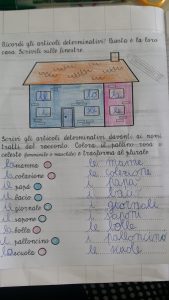 Ricordi gli articoli determinativi? Questa è la loro
casa. Scrivili sulle finestre.
Scrivi gli articoli determinativi davanti ai nomi
tratti dal racconto. Colora il pallino rosa o
celeste (femminile o maschile) e trasforma al plurale
la mamma le mamme
la colazione le colazione
il papà i papà
il bacio i baci
il giornale i giornali
il sapone i saponi
la bolla le bolle
il palloncino i palloncino
la scuola le scuole